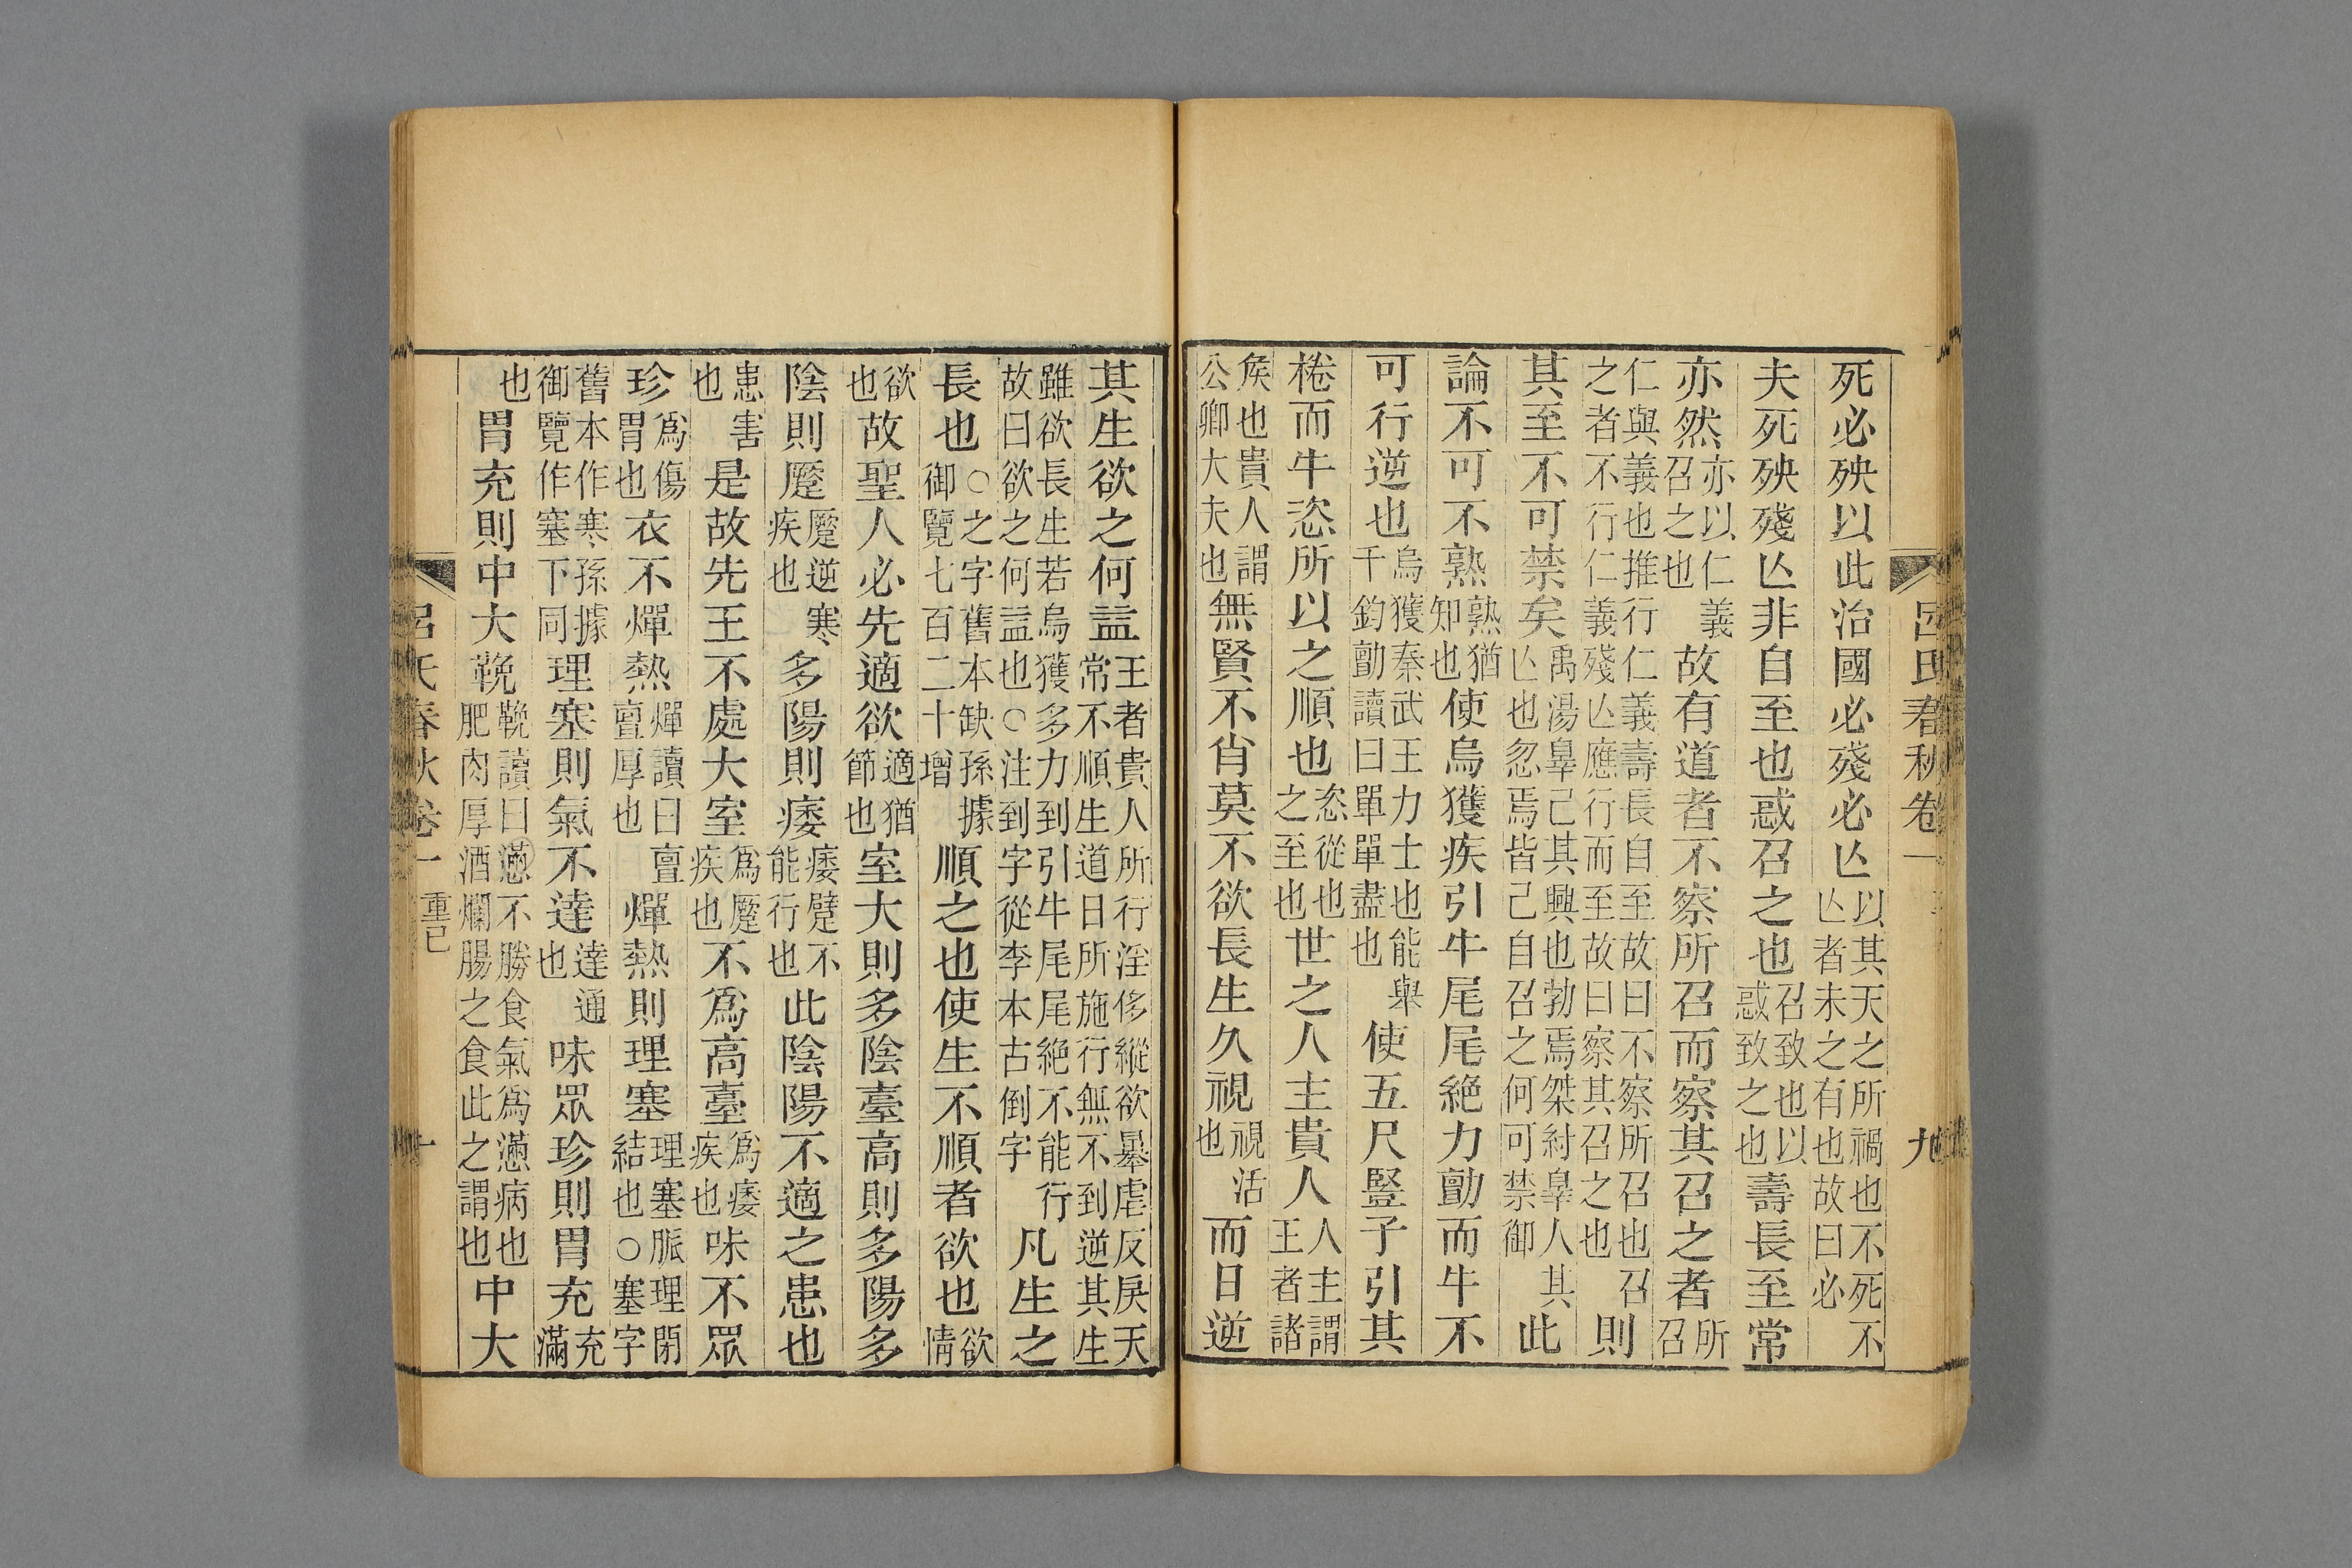 呂氏春秋卷一 九
死必殃以此治國必殘必亾以其天之所禍也不死不亾者未之有也故曰必
夫死殃殘亾非自至也惑召之也召致也以惑致之也壽長至常
亦然亦以仁義召之也故有道者不察所召而察其召之者所召
仁與義也推行仁義壽長自至故曰不察所召也召之者不行仁義殘亾應行而至故曰察其召之也則
其至不可禁矣禹湯辠己其興也勃焉桀紂辠人其亾也忽焉皆己自召之何可禁御此
論不可不熟熟猶知也使烏獲疾引牛尾尾絶力勯而牛不
可行逆也烏獲秦武王力士也能舉千鈞勯讀曰單單盡也使五尺豎子引其
棬而牛恣所以之順也恣從也之至也世之人主貴人人主謂王者諸
矦也貴人謂公卿大夫也無賢不肖莫不欲長生久視視活也而日逆
其生欲之何益王者貴人所行淫侈縱欲暴虐反戾天常不順生道日所施行無不到逆其生
雖欲長生若烏獲多力到引牛尾尾絶不能行故曰欲之何益也○注到字從李本古倒字凡生之
長也○之字舊本缺孫據御覽七百二十增順之也使生不順者欲也欲情
欲也故聖人必先適欲適猶節也室大則多陰臺高則多陽多
陰則蹷蹷逆寒疾也多陽則痿痿躄不能行也此陰陽不適之患也
患害也是故先王不處大室爲蹷疾也不爲高臺爲痿疾也味不眾
珍爲傷胃也衣不燀熱燀讀曰亶亶厚也燀熱則理塞理塞脈理閉結也○塞字
舊本作寒孫據御覽作塞下同理塞則氣不達達通也味眾珍則胃充充滿
也胃充則中大鞔鞔讀曰懣不勝食氣爲懣病也肥肉厚酒爛腸之食此之謂也中大
呂氏春秋卷一 重己 十